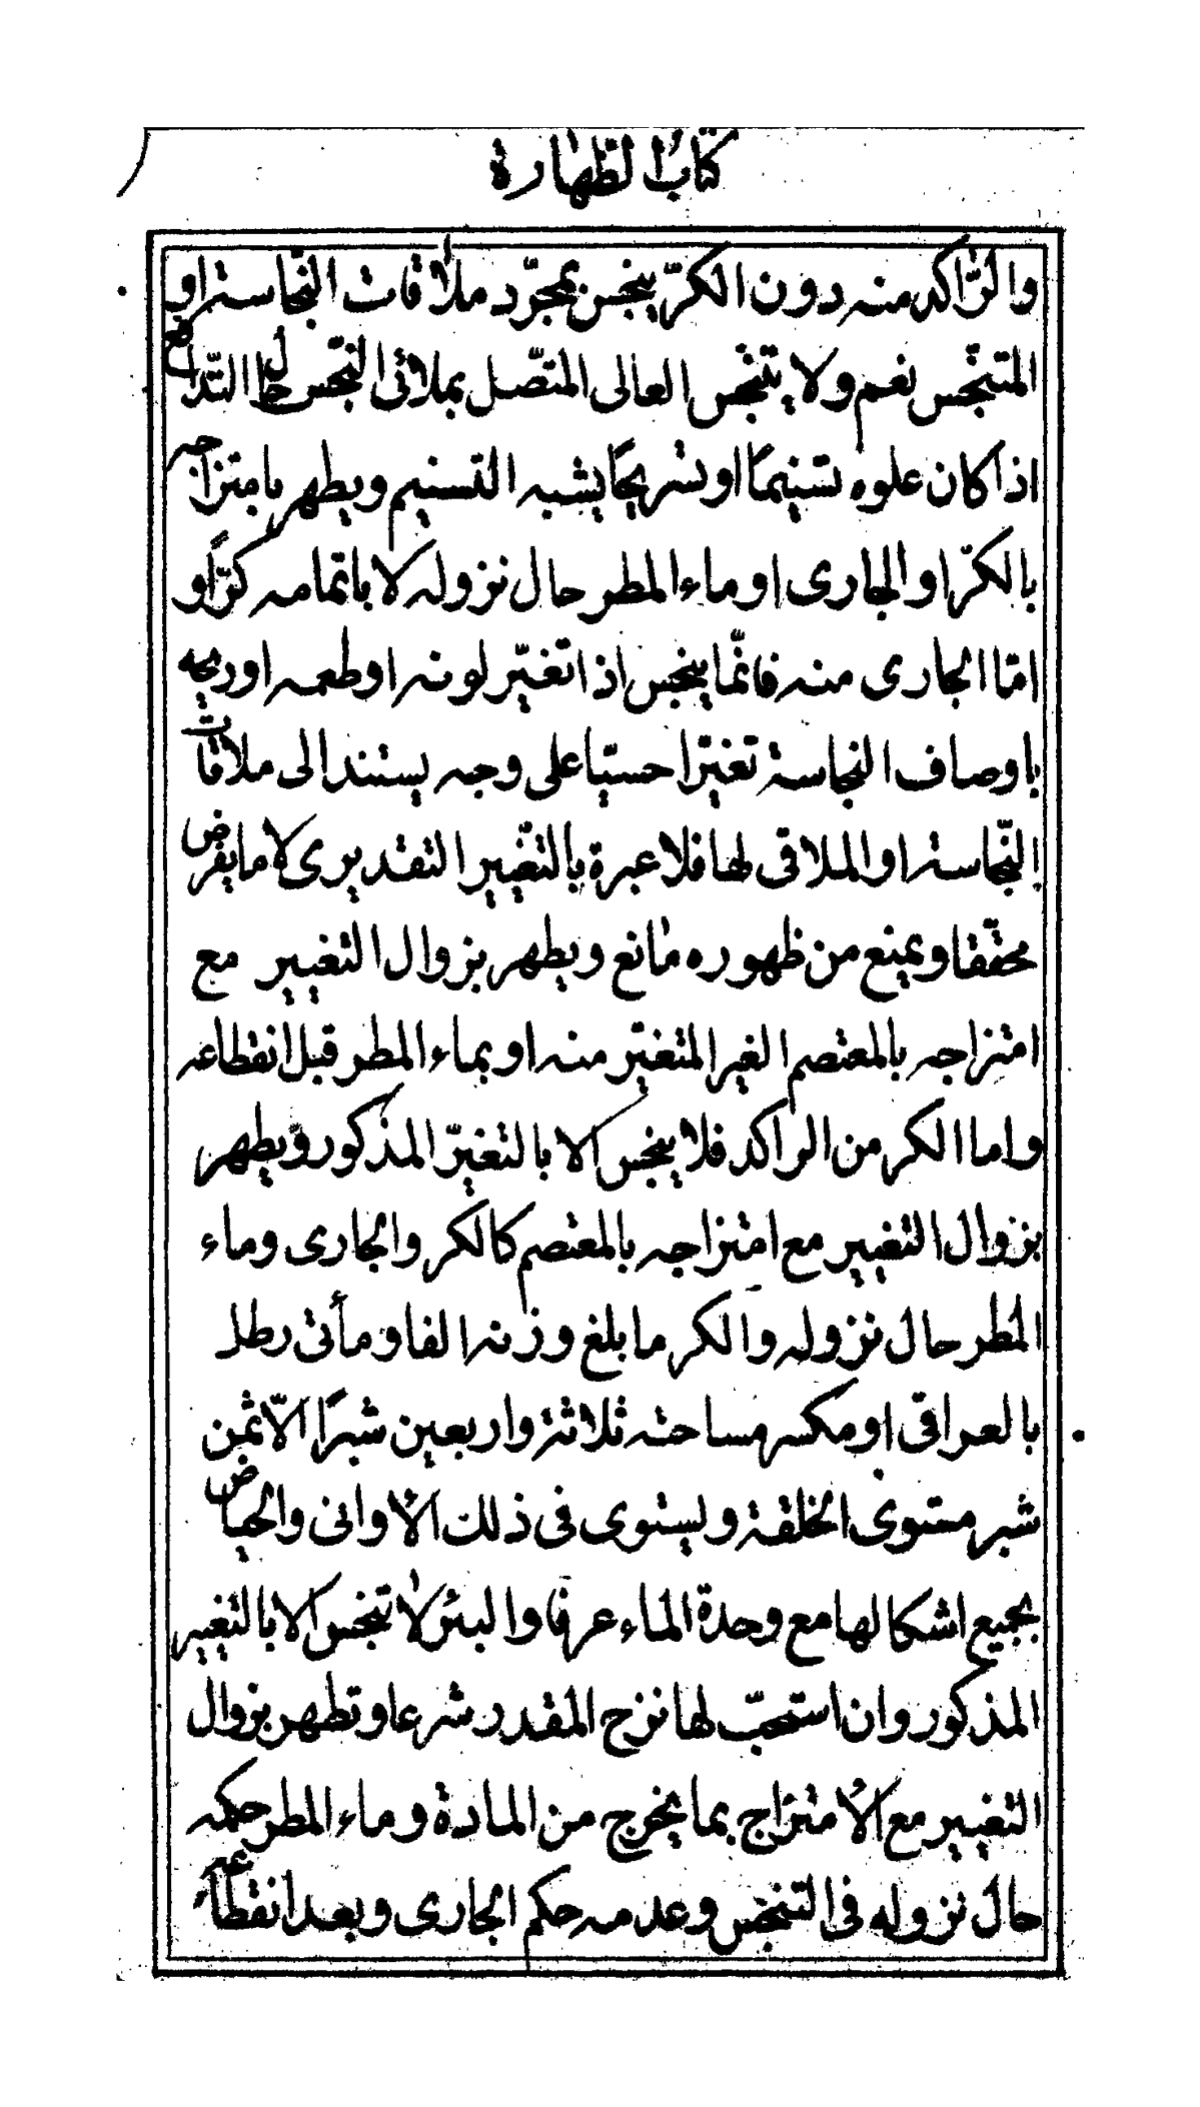 كتاب الطهارة
والرّاكد منه دون الكرّ ينجس بمجرّد ملاقات النّجاسة او
المتنجّس نعم ولا يتنجّس العالى المتّصل بملاقى النّجس حال التّدافع
اذا كان علوه تسنيمًا او تسريحًا يشبه التسنيم ويطهر بامتزاجه
بالكرّ او الجارى او ماء المطر حال نزوله لا باتمامه كرّا و
امّا الجارى منه فانّما ينجس اذا تغيّر لونه او طعمه او ريحه
باوصاف النجاسة تغيّرا حسيّا على وجه يستند الى ملاقات
النّجاسة او الملاقى لها فلا عبرة بالتغّيير التقديرى لا ما يفرض
محقّقا ويمنع من ظهوره مانع ويطهر بزوال التغيير مع
امتزاجه بالمعتصم الغير المتغيّر منه او بماء المطر قبل انقطاعه
واما الكر من الراكد فلا ينجس الا بالتغيّر المذكور ويطهر
بزوال التغيير مع امتزاجه بالمعتصم كالكر والجارى وماء
المطر حال نزوله والكر ما بلغ وزنه الفا ومأتى رطل
بالعراقى او مكسر مساحته ثلاثة واربعين شبرًا الّا ثمن
شبر مستوى الخلقة ويستوى فى ذلك الأوانى والحياض
بجميع اشكالها مع وحدة الماء عرفا والبئر لا تنجس الا بالتغيير
المذكور وان استحبّ لها نزح المقدر شرعا وتطهر بزوال
التغيير مع الأمتزاج بما يخرج من المادة وماء المطر حكمه
حال نزوله فى التنجّس وعدمه حكم الجارى وبعد انقطاعه